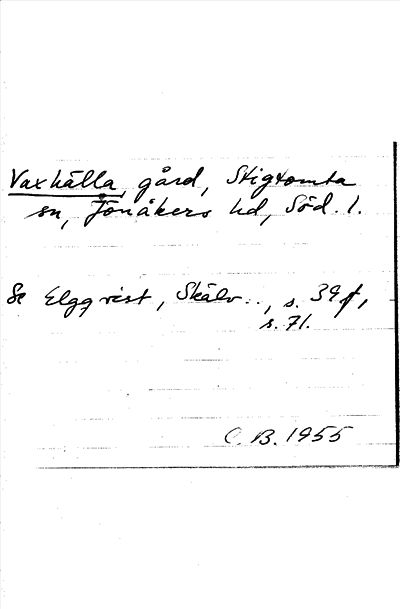 Vaxhälla, gård, Stigtomta
sn, Jönåkers hd, Söd. l.
Se Elgqvist, Skälv.., s. 39 f,
s. 71.
C. B. 1955